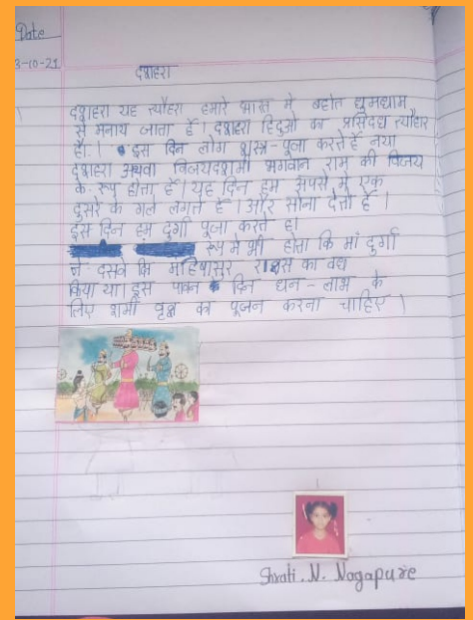 Date
3-10-21
दशहरा
दशहरा यह त्यौहरा हमारे भारत मे बहोत धुमधाम
से मनाय जाता हैं। दशहरा हिदुओ का प्रसिदध त्यौहार
हैं।। इस दिन लोग शस्त्र-पूजा करते हैं नया
दुशहरा अथवा विजयदशमी भगवान राम की विजय
के रूप होता हैं। यह दिन हम अपसे मे एक
दुसरे के गले लगते हैं। और सोना देतो हैं।
इस दिन हम दुर्गा पूजा करते हैं।
रूप मे भी होता कि मां दुर्गा
ने दसवे कि महिषासुर राक्षस का वध
किया था। इस पावन दिन धन-लाभ के
लिए शमी वृक्ष का पूजन करना चाहिए।
Shrati. N. Nagapure